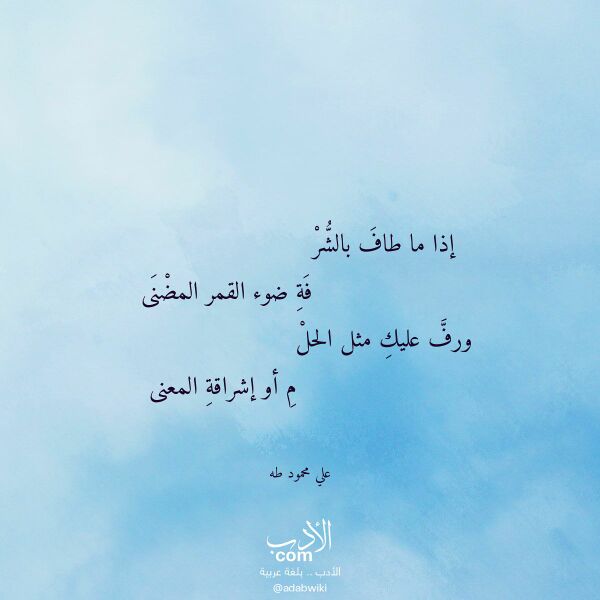 إذا ما طافَ بالشُّرْ
فَةِ ضوء القمر المضْنَى
ورفَّ عليكِ مثل الحلْ
مِ أو إشراقةِ المعنى
علي محمود طه
الأدب
com
الأدب .. بلغة عربية
@adabwiki